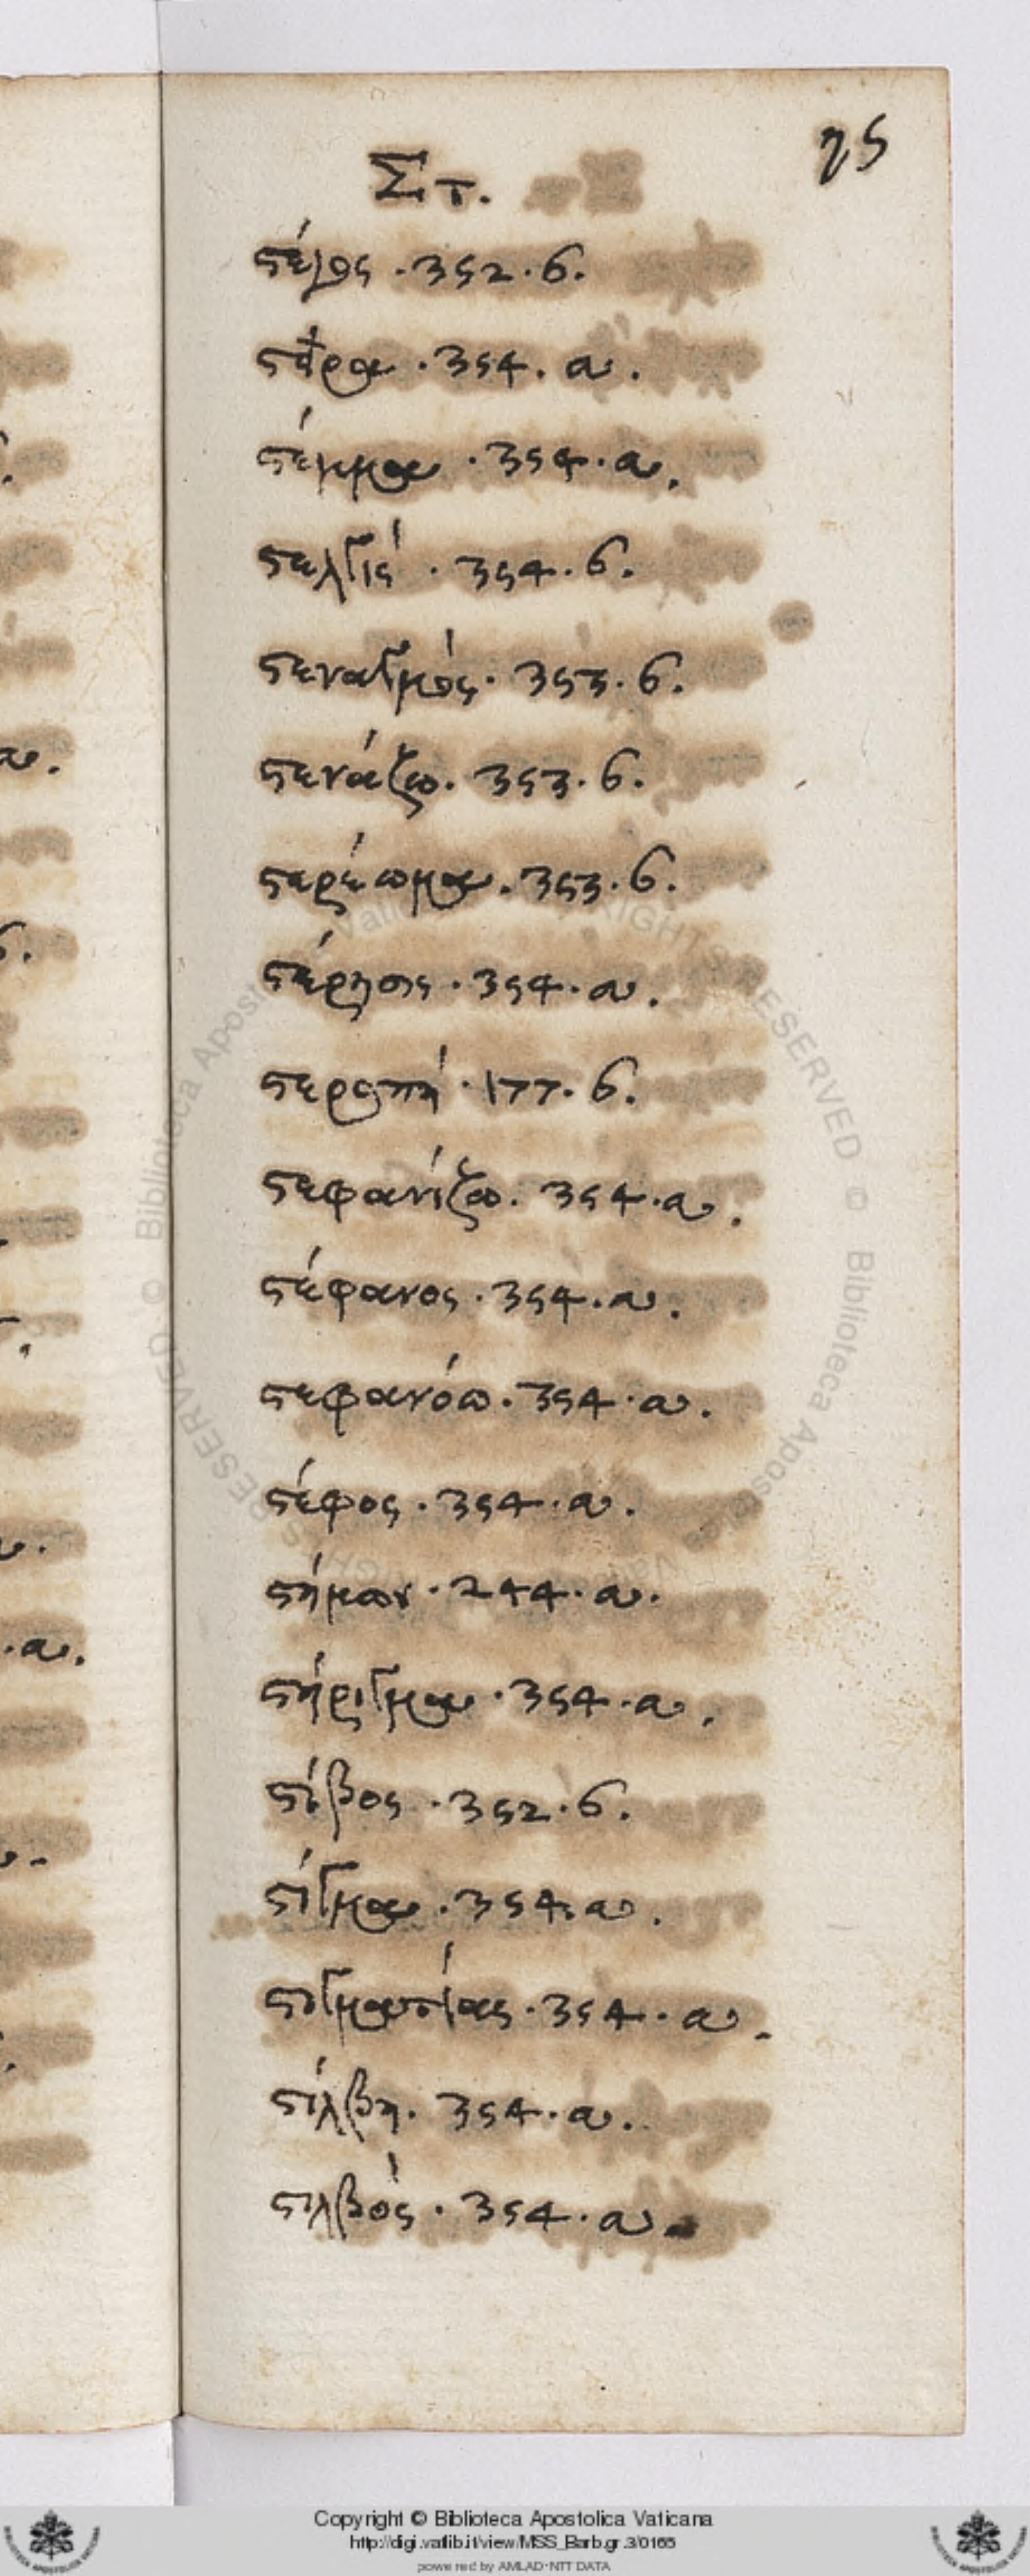 75
Στ.
στέγος · 352 · β.
στεῖρα · 354 · α.
στέμμα · 354 · α.
στεναγμός · 353 · β.
στενάζω · 353 · β.
στερέωμα · 353 · β.
στέρησις · 354 · α.
στεροπή · 177 · β.
στεφανίζω · 354 · α.
στέφανος · 354 · α.
στεφανόω · 354 · α.
στέφος · 354 · α.
στήμων · 244 · α.
στήριγμα · 354 · α.
στίβος · 352 · β.
στίγμα · 354 · α.
στιγματίας · 354 · α.
στίλβη · 354 · α.
στιλβός · 354 · α.
Copyright © Biblioteca Apostolica Vaticana
http://digi.vatlib.it/view/MSS_Barb.gr.3/0165
powered by AMLAD·NTT DATA